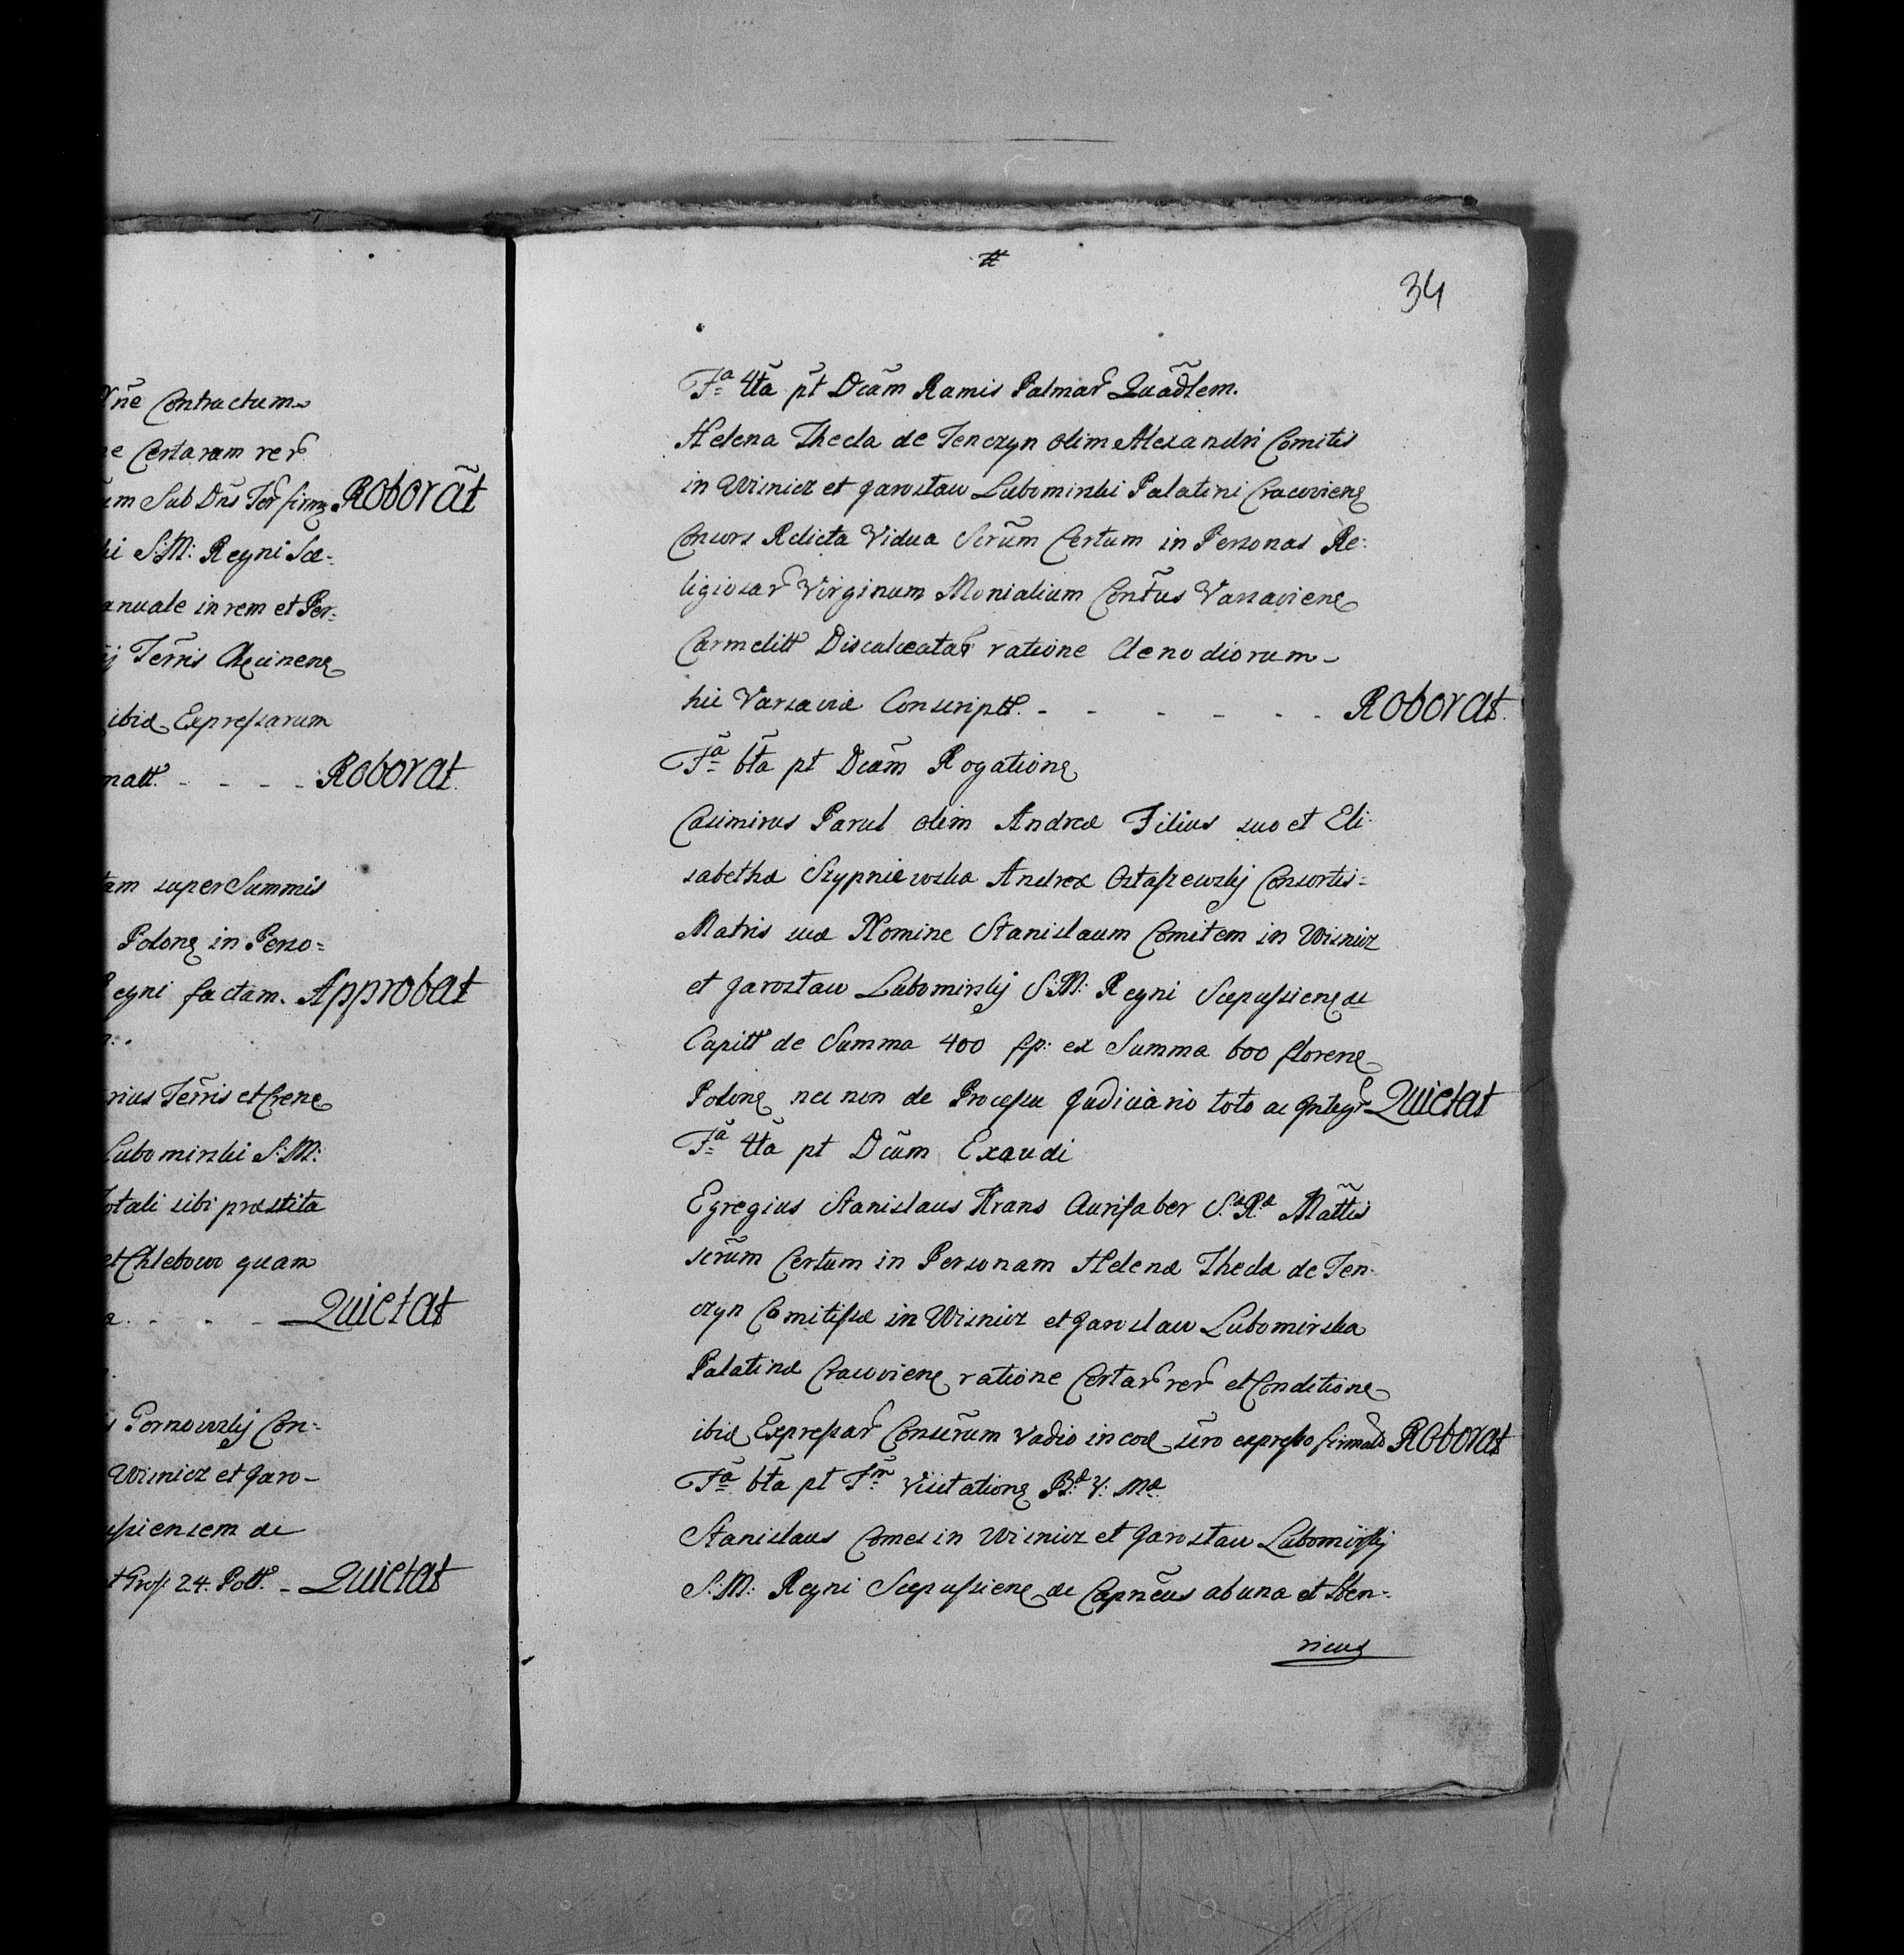 Xñe Contractum
Certarum rer
Sub Dñs Ter firmz Roborãt
S: M: Regni Sce-
anuale in rem et Per-
Terris Checinens
ibid Expressarum
matt. - - - - Roborat.
tam super Summis
Polons in Perso=
Regni factam. Approbat
rius Terris et Crens
Lubomirski S: M:
totali sibi præstita
et Chlebowo quam
Quietat
Gornowskij Con=
Wisnicz et Jaro-
usiensem de
Gross 24. Poll. - Quietat
34
Fa 4ta pt Dcam Ramis Palmar Quadlem.
Helena Thecla de Tenczyn olim Alexandri Comitis
in Wisnicz et Jarostaw Lubomirski Palatini Cracoviens
Consors Relicta Vidua Scrum Certum in Personas Re:
ligiosar Virginum Monialium Contus Varsaviens
Carmelitt Discalceatar ratione Clenodiorum -
hic Varsaviæ Conscriptt. - - - - - - Roborat.
Fa 6ta pt Dcam Rogations
Casimirus Parul olim Andreæ Filius suo et Eli-
sabethæ Szypniewska Andreæ Ostaszewskij Consortis =
Matris suæ Nomine Stanislaum Comitem in Wisnicz
et Jarostaw Lubomirskij S: M: Regni Scepusiens &
Capitt de Summa 400 fp: ex Summa 600 florens
Polons nec non de Processu Judiciario toto ac Integr Quietat
Fa 4ta pt Dcam Exaudi
Egregius Stanislaus Krans Aurifaber S: Ræ Mattis
scrum Certum in Personam Helenæ Theclæ de Ten-
czyn Comitissæ in Wisnicz et Jaroslaw Lubomirska
Palatinæ Cracoviens ratione Certar rer et Conditions
ibid Expressar Conscrum Vadio in eod scro expresso firmat Roborat
Fa 6ta pt Fm Visitations B: V: Mæ
Stanislaus Comes in Wisnicz et Jarostaw Lubomirskij
S: M: Regni Scepusiens & Capneus ab una et Hen-
ricus